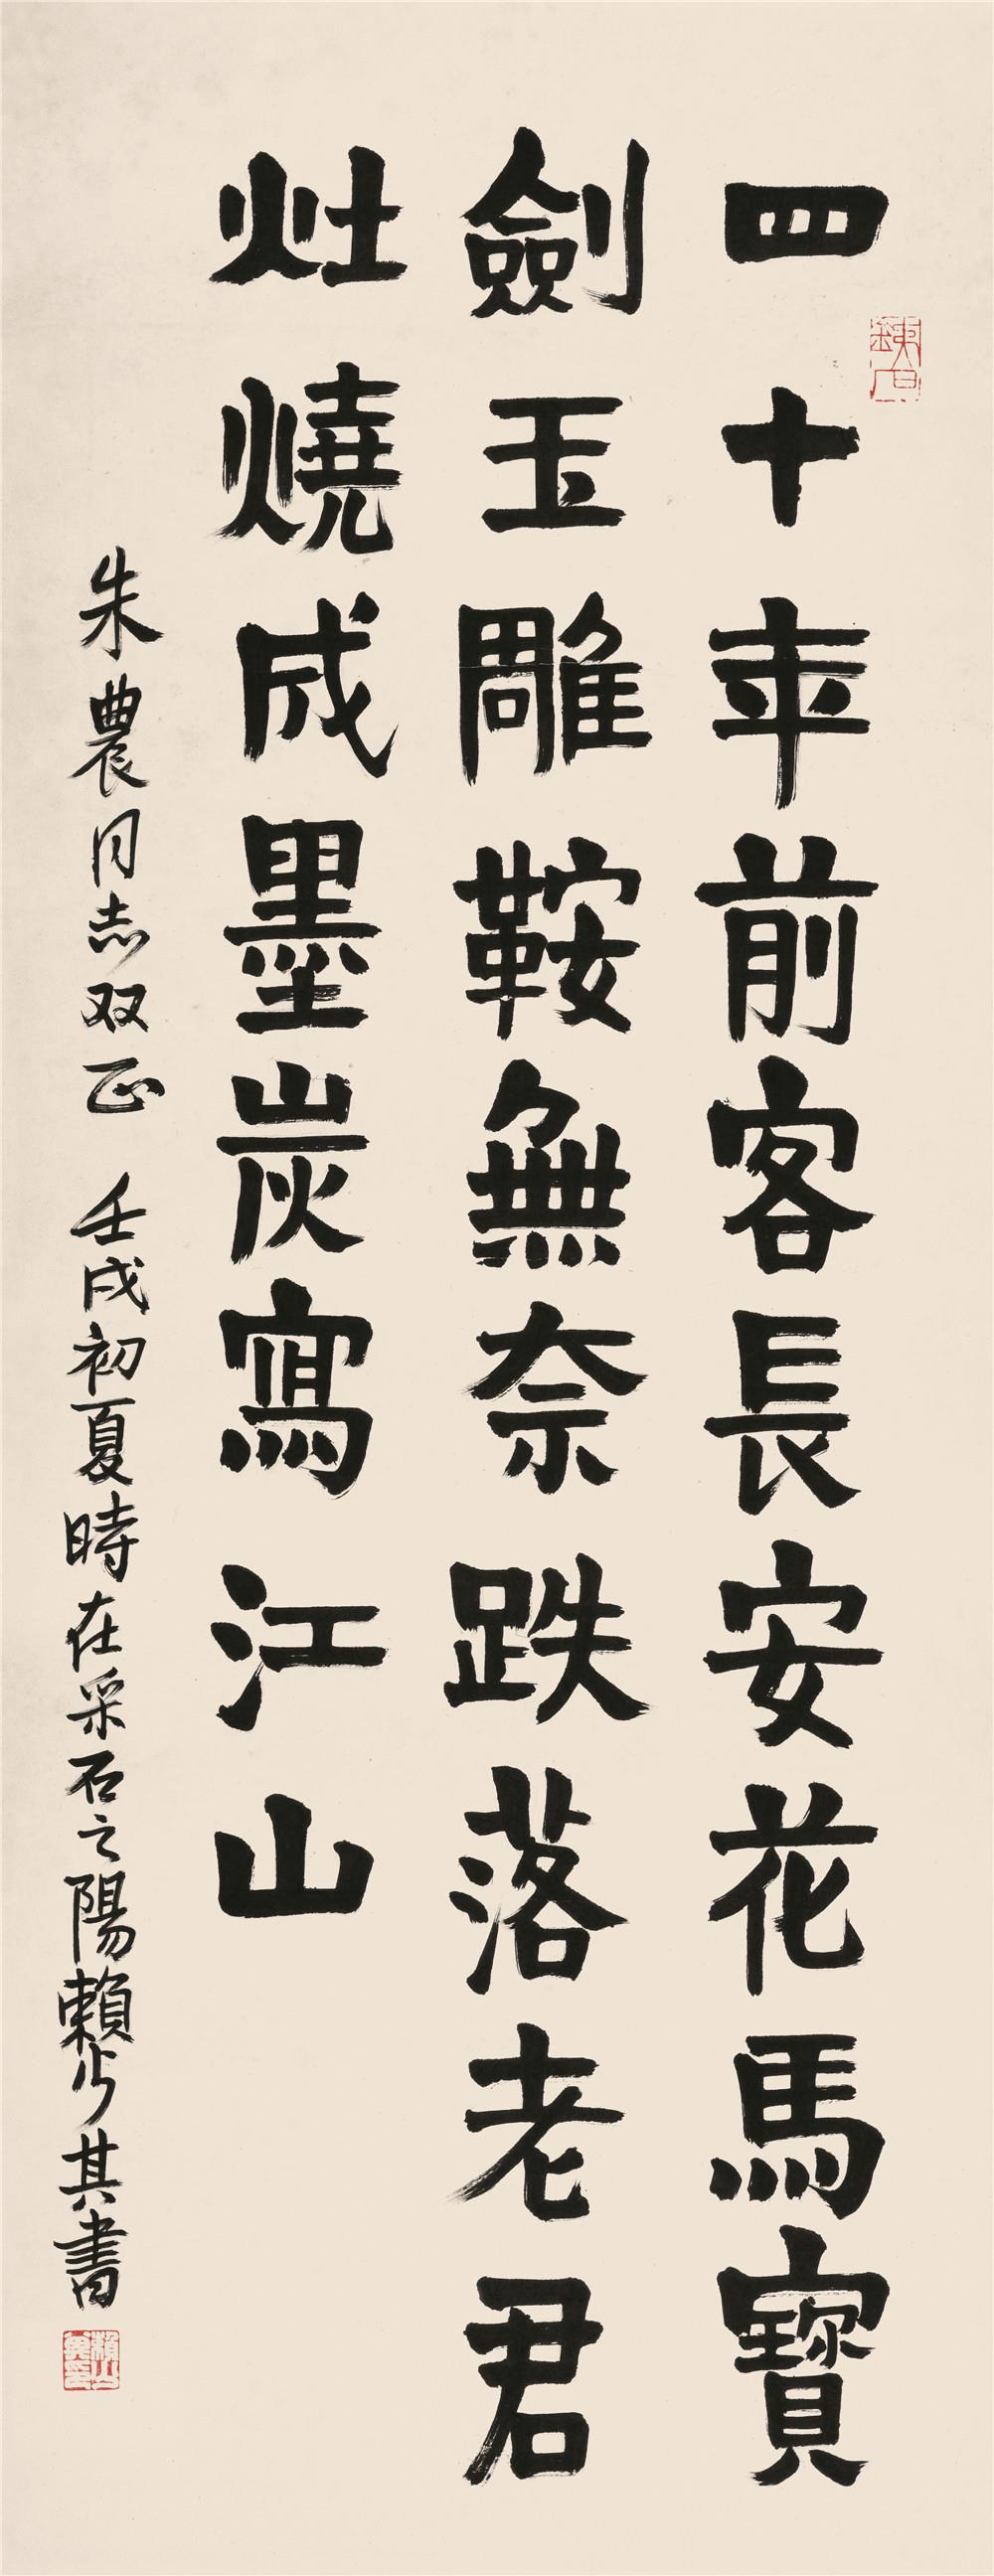 四十年前客長安花馬寶
劍玉雕鞍無奈跌落老君
灶燒成墨炭寫江山
朱農同志双正 壬戌初夏時在采石之陽賴少其書